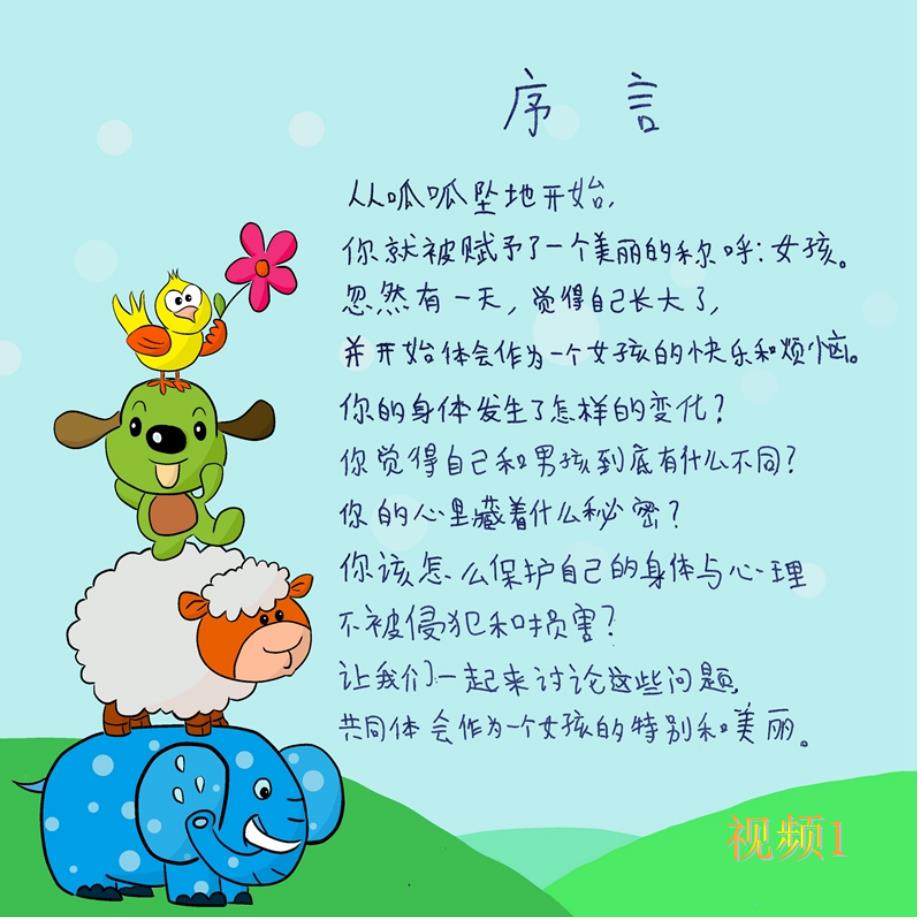 序 言
从呱呱坠地开始,
你就被赋予了一个美丽的称呼:女孩。
忽然有一天,觉得自己长大了,
并开始体会作为一个女孩的快乐和烦恼。
你的身体发生了怎样的变化?
你觉得自己和男孩到底有什么不同?
你的心里藏着什么秘密?
你该怎么保护自己的身体与心理
不被侵犯和损害?
让我们一起来讨论这些问题,
共同体会作为一个女孩的特别和美丽。
视频1